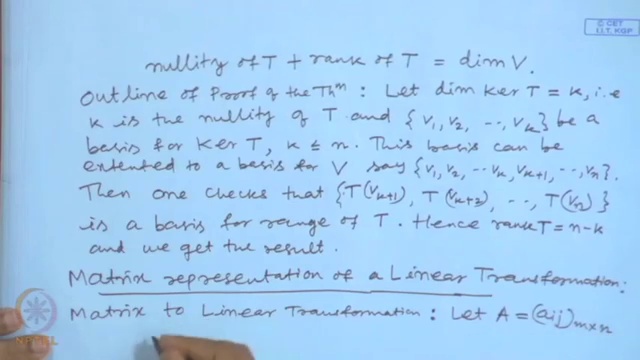 © CET
I.I.T. KGP
nullity of T + rank of T = dim V.
Outline of Proof of the Thm : Let dim ker T = k, i.e
k is the nullity of T and {v1, v2, ..., vk} be a
basis for Ker T, k ≤ n. This basis can be
extented to a basis for V say {v1, v2, ... vk, vk+1, ..., vn}.
Then one checks that {T(vk+1), T(vk+2), ..., T(vn)}
is a basis for range of T. Hence rank T = n-k
and we get the result.
Matrix representation of a Linear Transformation:
Matrix to Linear Transformation : Let A = (aij)m×n
NPTEL